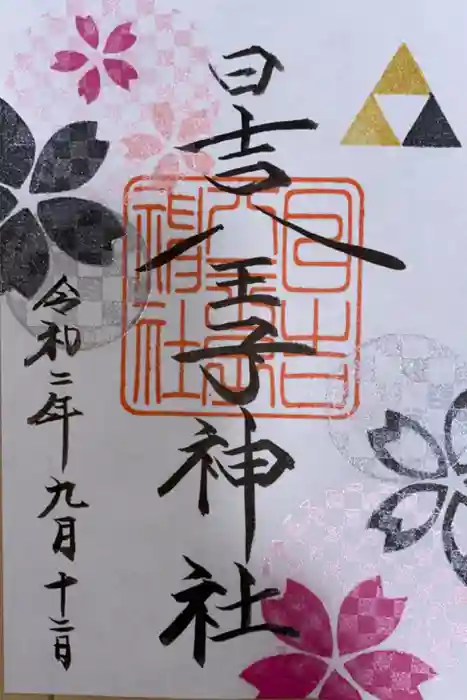 日吉八王子神社
令和二年九月十二日
日吉
八王子
神社